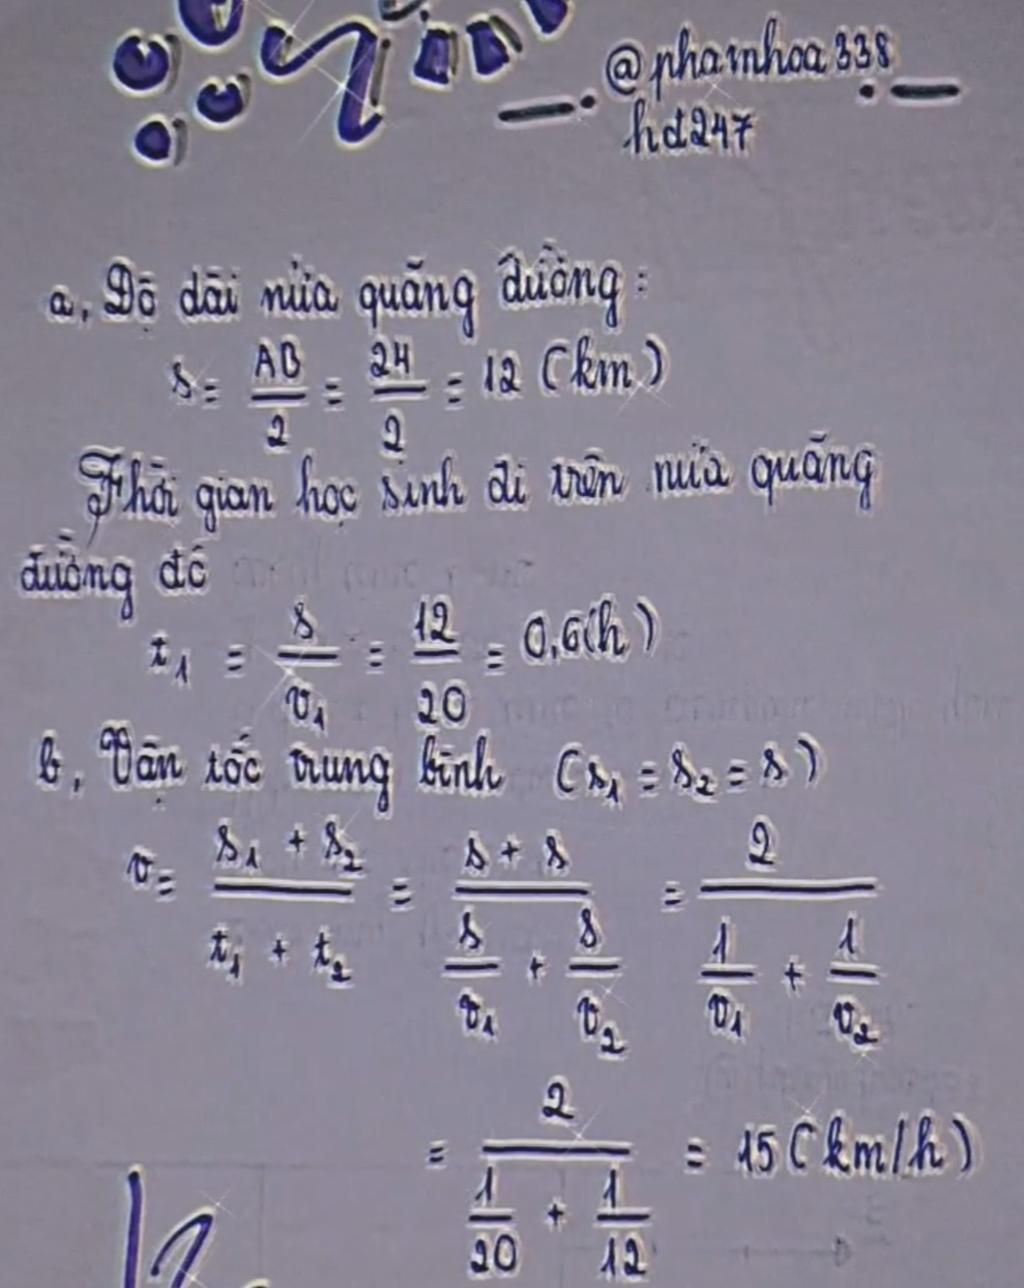 @phamhoa338
hd247
a, Độ dài nửa quãng đường:
s = AB/2 = 24/2 = 12 (km)
Thời gian học sinh đi trên nửa quãng
đường đó
t₁ = s/v₁ = 12/20 = 0,6(h)
b, Vận tốc trung bình (s₁ = s₂ = s)
v = (s₁ + s₂)/(t₁ + t₂) = (s + s)/(s/v₁ + s/v₂) = 2/(1/v₁ + 1/v₂)
= 2/(1/20 + 1/12) = 15 (km/h)